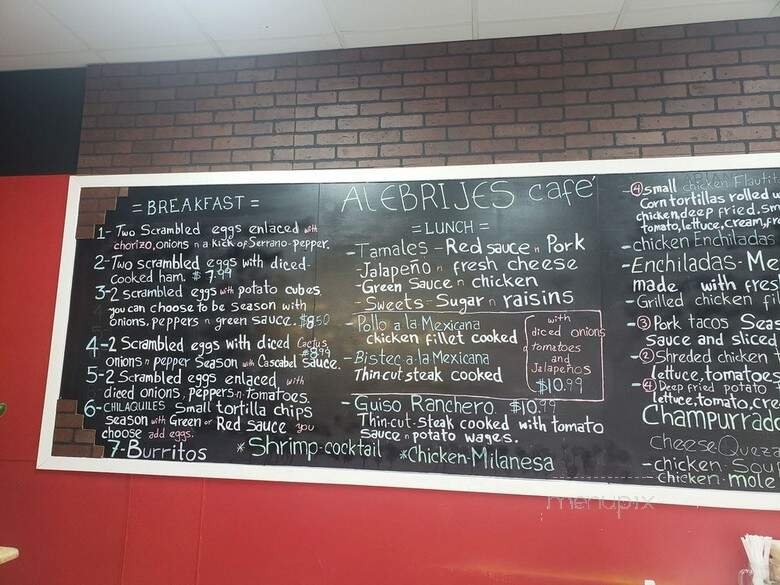 = BREAKFAST =
1- Two Scrambled eggs enlaced with
chorizo, onions n a kick of Serrano-pepper.
2- Two scrambled eggs with diced
cooked ham. $7.99
3-2 scrambled eggs with potato cubes
you can choose to be season with
onions, peppers n green sauce. $8.50
4-2 Scrambled eggs with diced Cactus
onions n pepper Season with Cascabel Sauce. $8.99
5-2 Scrambled eggs enlaced with
diced onions, peppers n tomatoes.
6-CHILAQUILES Small tortilla chips
season with Green or Red sauce you
choose add eggs.
7-Burritos
*Shrimp-cocktail
*Chicken-Milanesa
ALEBRIJES café
= LUNCH =
-Tamales - Red sauce n Pork
-Jalapeño n fresh cheese
-Green Sauce n chicken
-Sweets-Sugar n raisins
-Pollo a la Mexicana
chicken fillet cooked
-Bistec-a-la-Mexicana
Thin cut steak cooked
with
diced onions
tomatoes
and
Jalapeños
$10.99
-Guiso Ranchero. $10.99
Thin-cut-steak cooked with tomato
Sauce n potato wages.
-④small chicken Flautit
Corn tortillas rolled w
chicken, deep fried. sm
tomato, lettuce, cream, fr
-chicken Enchiladas
-Enchiladas-Me
made with fres
-Grilled chicken fi
-③Pork tacos Sea
Sauce and sliced
-②Shreded chicken
lettuce, tomatoes
-④Deep fried potato
lettuce, tomato, cre
Champurrado
cheese Queza
-chicken-Sou
-chicken-mole
menupix